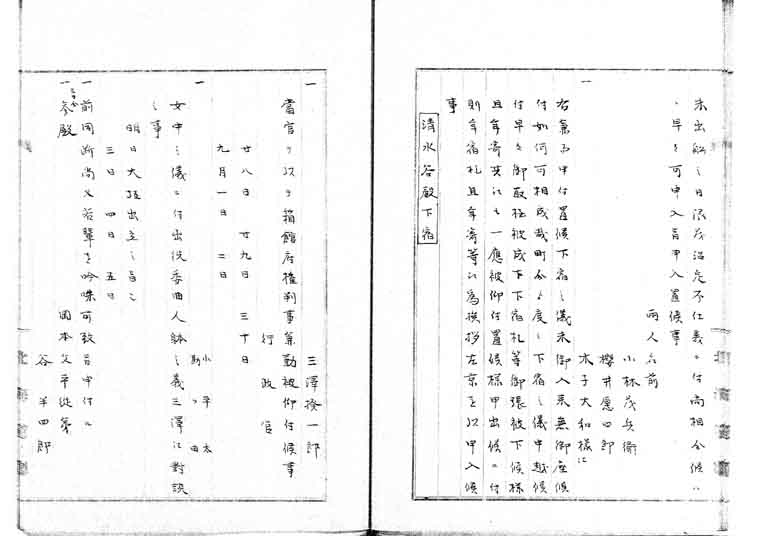 未出船之日限茂治定不仕義ニ付尚相分候ハ
、早々可申入旨申入置候事
両人名前
小林茂兵衛
櫻井愿四郎
木子大和様江
一
右兼而申付置候下宿之儀未御入来無御座候
付如何可相成哉町会ゟ度々下宿之儀申越候
付早々御取極被成下下宿札等御張被下候様
且年寄共江も一應被仰付置候様申出候ニ付
則下宿札且年寄等江為挨拶左京を以申入候
事
清水谷殿下宿
一
三澤揆一郎
當官ヲ以テ箱館府権判事兼勤被仰付候事
行政官
廿八日 廿九日 三十日
九月一日 二日
一
小平太
勘田
女中之儀ニ付出役委曲人躰之義三澤江對談
之事
明日大坂出立之旨之
三日 四日 五日
一 前同断尚又若輩を吟味可致旨申付ル
一 参殿 岡本文平従弟
谷半四郎